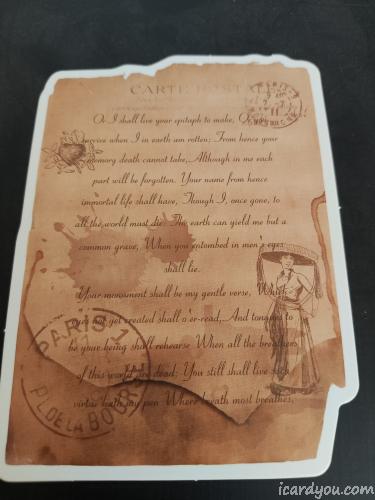 CARTE POSTALE
Or I shall live your epitaph to make, Or
survive when I in earth am rotten; From hence your
memory death cannot take, Although in me each
part will be forgotten. Your name from hence
immortal life shall have, Though I, once gone, to
all the world must die: The earth can yield me but a
common grave, When you entombed in men's eyes
shall lie.
Your monument shall be my gentle verse, Which
eyes not yet created shall o'er-read, And tongues to
be your being shall rehearse When all the breathers
of this world are dead; You still shall live such
virtue hath my pen Where breath most breathes,
PARIS-1
PL. DE LA BOURSE
icardyou.com